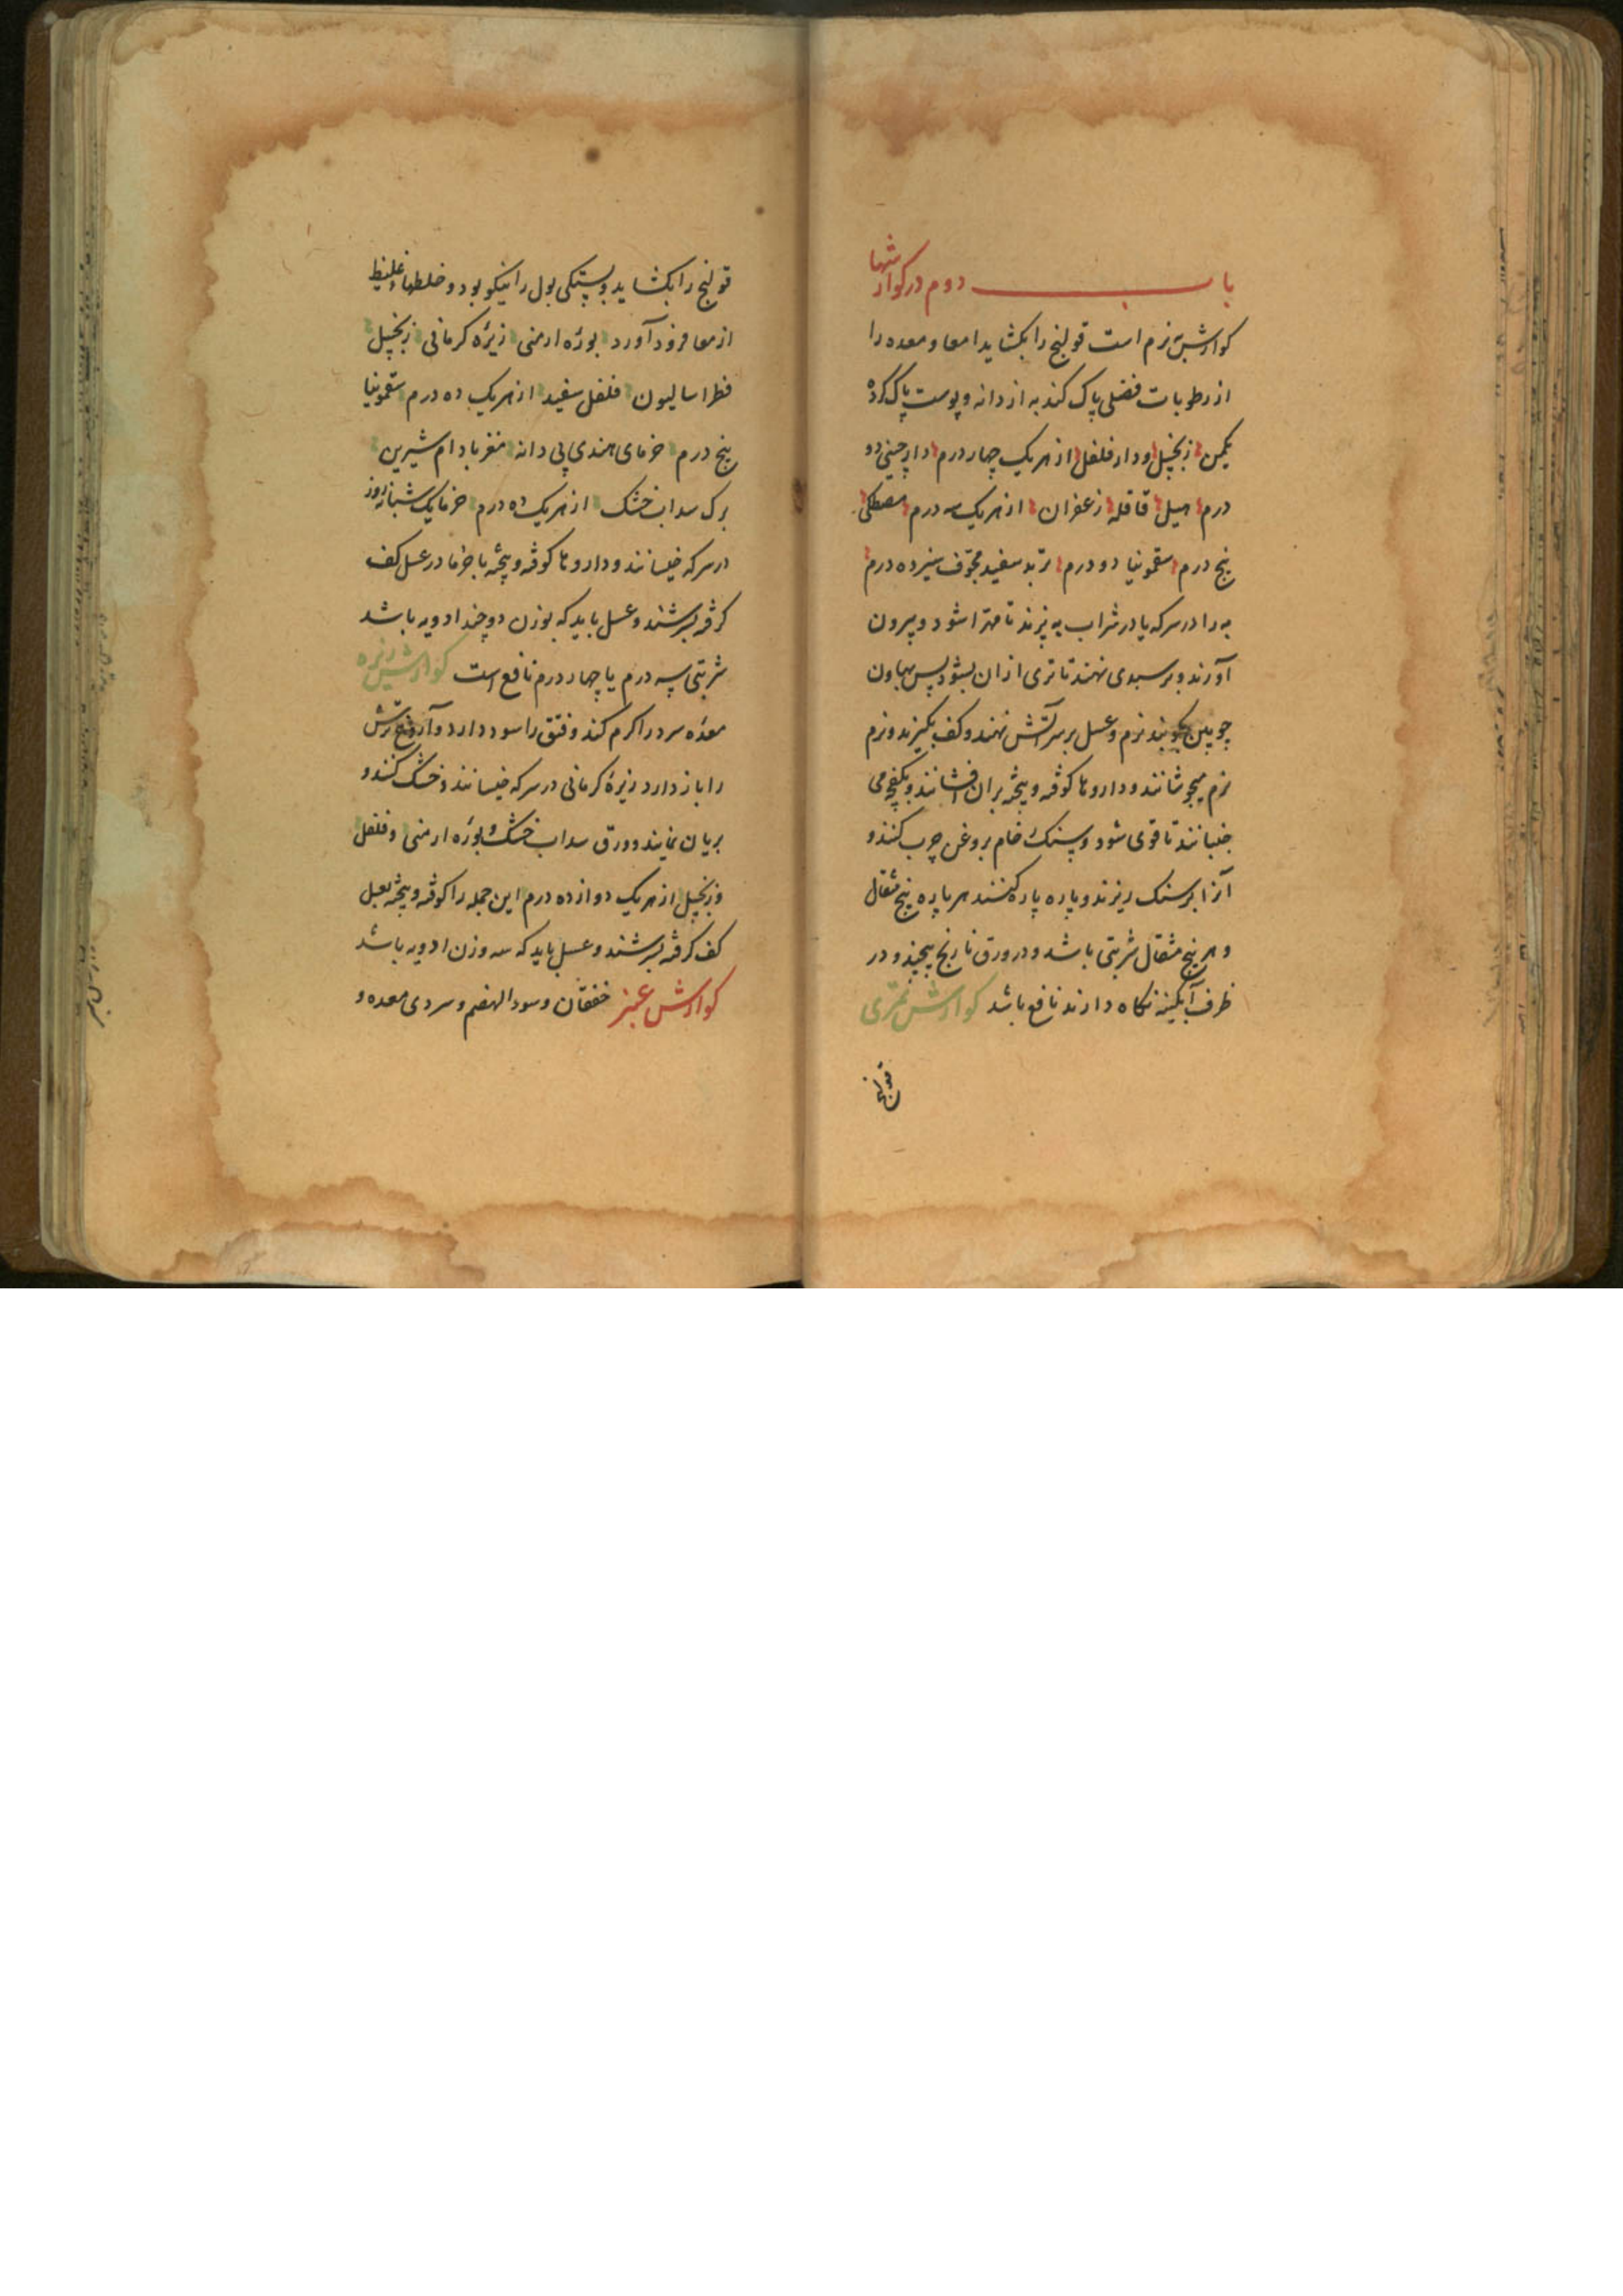 باب دوم در کوارشها
کوارش نرم است قولنج را بکشاید امعا و معده را
از رطوبات فضلی پاک کند به از دانه و پوست پاک کرده
یکمن زنجبیل و دار فلفل از هر یک چهار درم دارچینی دو
درم هیل قاقله زعفران از هر یک سه درم مصطکی
پنج درم سقمونیا دو درم تربد سفید مجوف سیزده درم
به را در سرکه یا در شراب به پزند تا مهرا شود و بیرون
آورند و بر سبدی نهند تا تری ازان بشود پس بهاون
چوبین بکوبند نرم و عسل بر سر آتش نهند و کف بگیرند و نرم
نرم میجوشانند و داروها کوفته و بیخته بران افشانند و بکفچه می
جنبانند تا قوی شود و سنک خام بروغن چرب کنند و
آنرا بر سنک ریزند و پاره پاره کنند هر پاره پنج مثقال
و هر پنج مثقال شربتی باشد و در ورق نارنج پیچند و در
ظرف آبکینه نکاه دارند نافع باشد کوارش تمری
قولنج
قولنج را بکشاید و بستکی بول را نیکو بود و خلطهاء غلیظ
از معا فرود آورد بورٔه ارمنی زیرٔه کرمانی زنجبیل
فطراسالیون فلفل سفید از هر یک ده درم سقمونیا
پنج درم خرمای هندی بی دانه مغز بادام شیرین
برک سداب خشک از هر یک ده درم خرما یک شبانروز
در سرکه خیسانند و داروها کوفته و بیخته با خرما در عسل کف
کرفته بسرشند و عسل باید که بوزن دو چند ادویه باشد
شربتی سه درم یا چهار درم نافع است کوارش زیره
معدٔه سرد را کرم کند و فتق را سود دارد و آروغ ترش
را باز دارد زیرٔه کرمانی در سرکه خیسانند و خشک کنند و
بریان نمایند و ورق سداب خشک و بورٔه ارمنی و فلفل
و زنجبیل از هر یک دوازده درم این جمله را کوفته و بیخته بعسل
کف کرفته بسرشند و عسل باید که سه وزن ادویه باشد
کوارش عنبر خفقان و سوء الهضم و سردی معده و